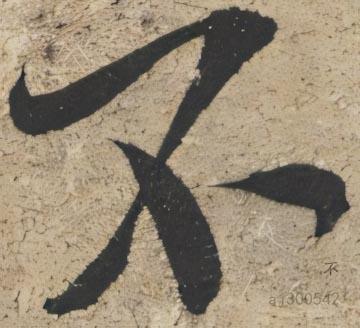 不
不
a1300542